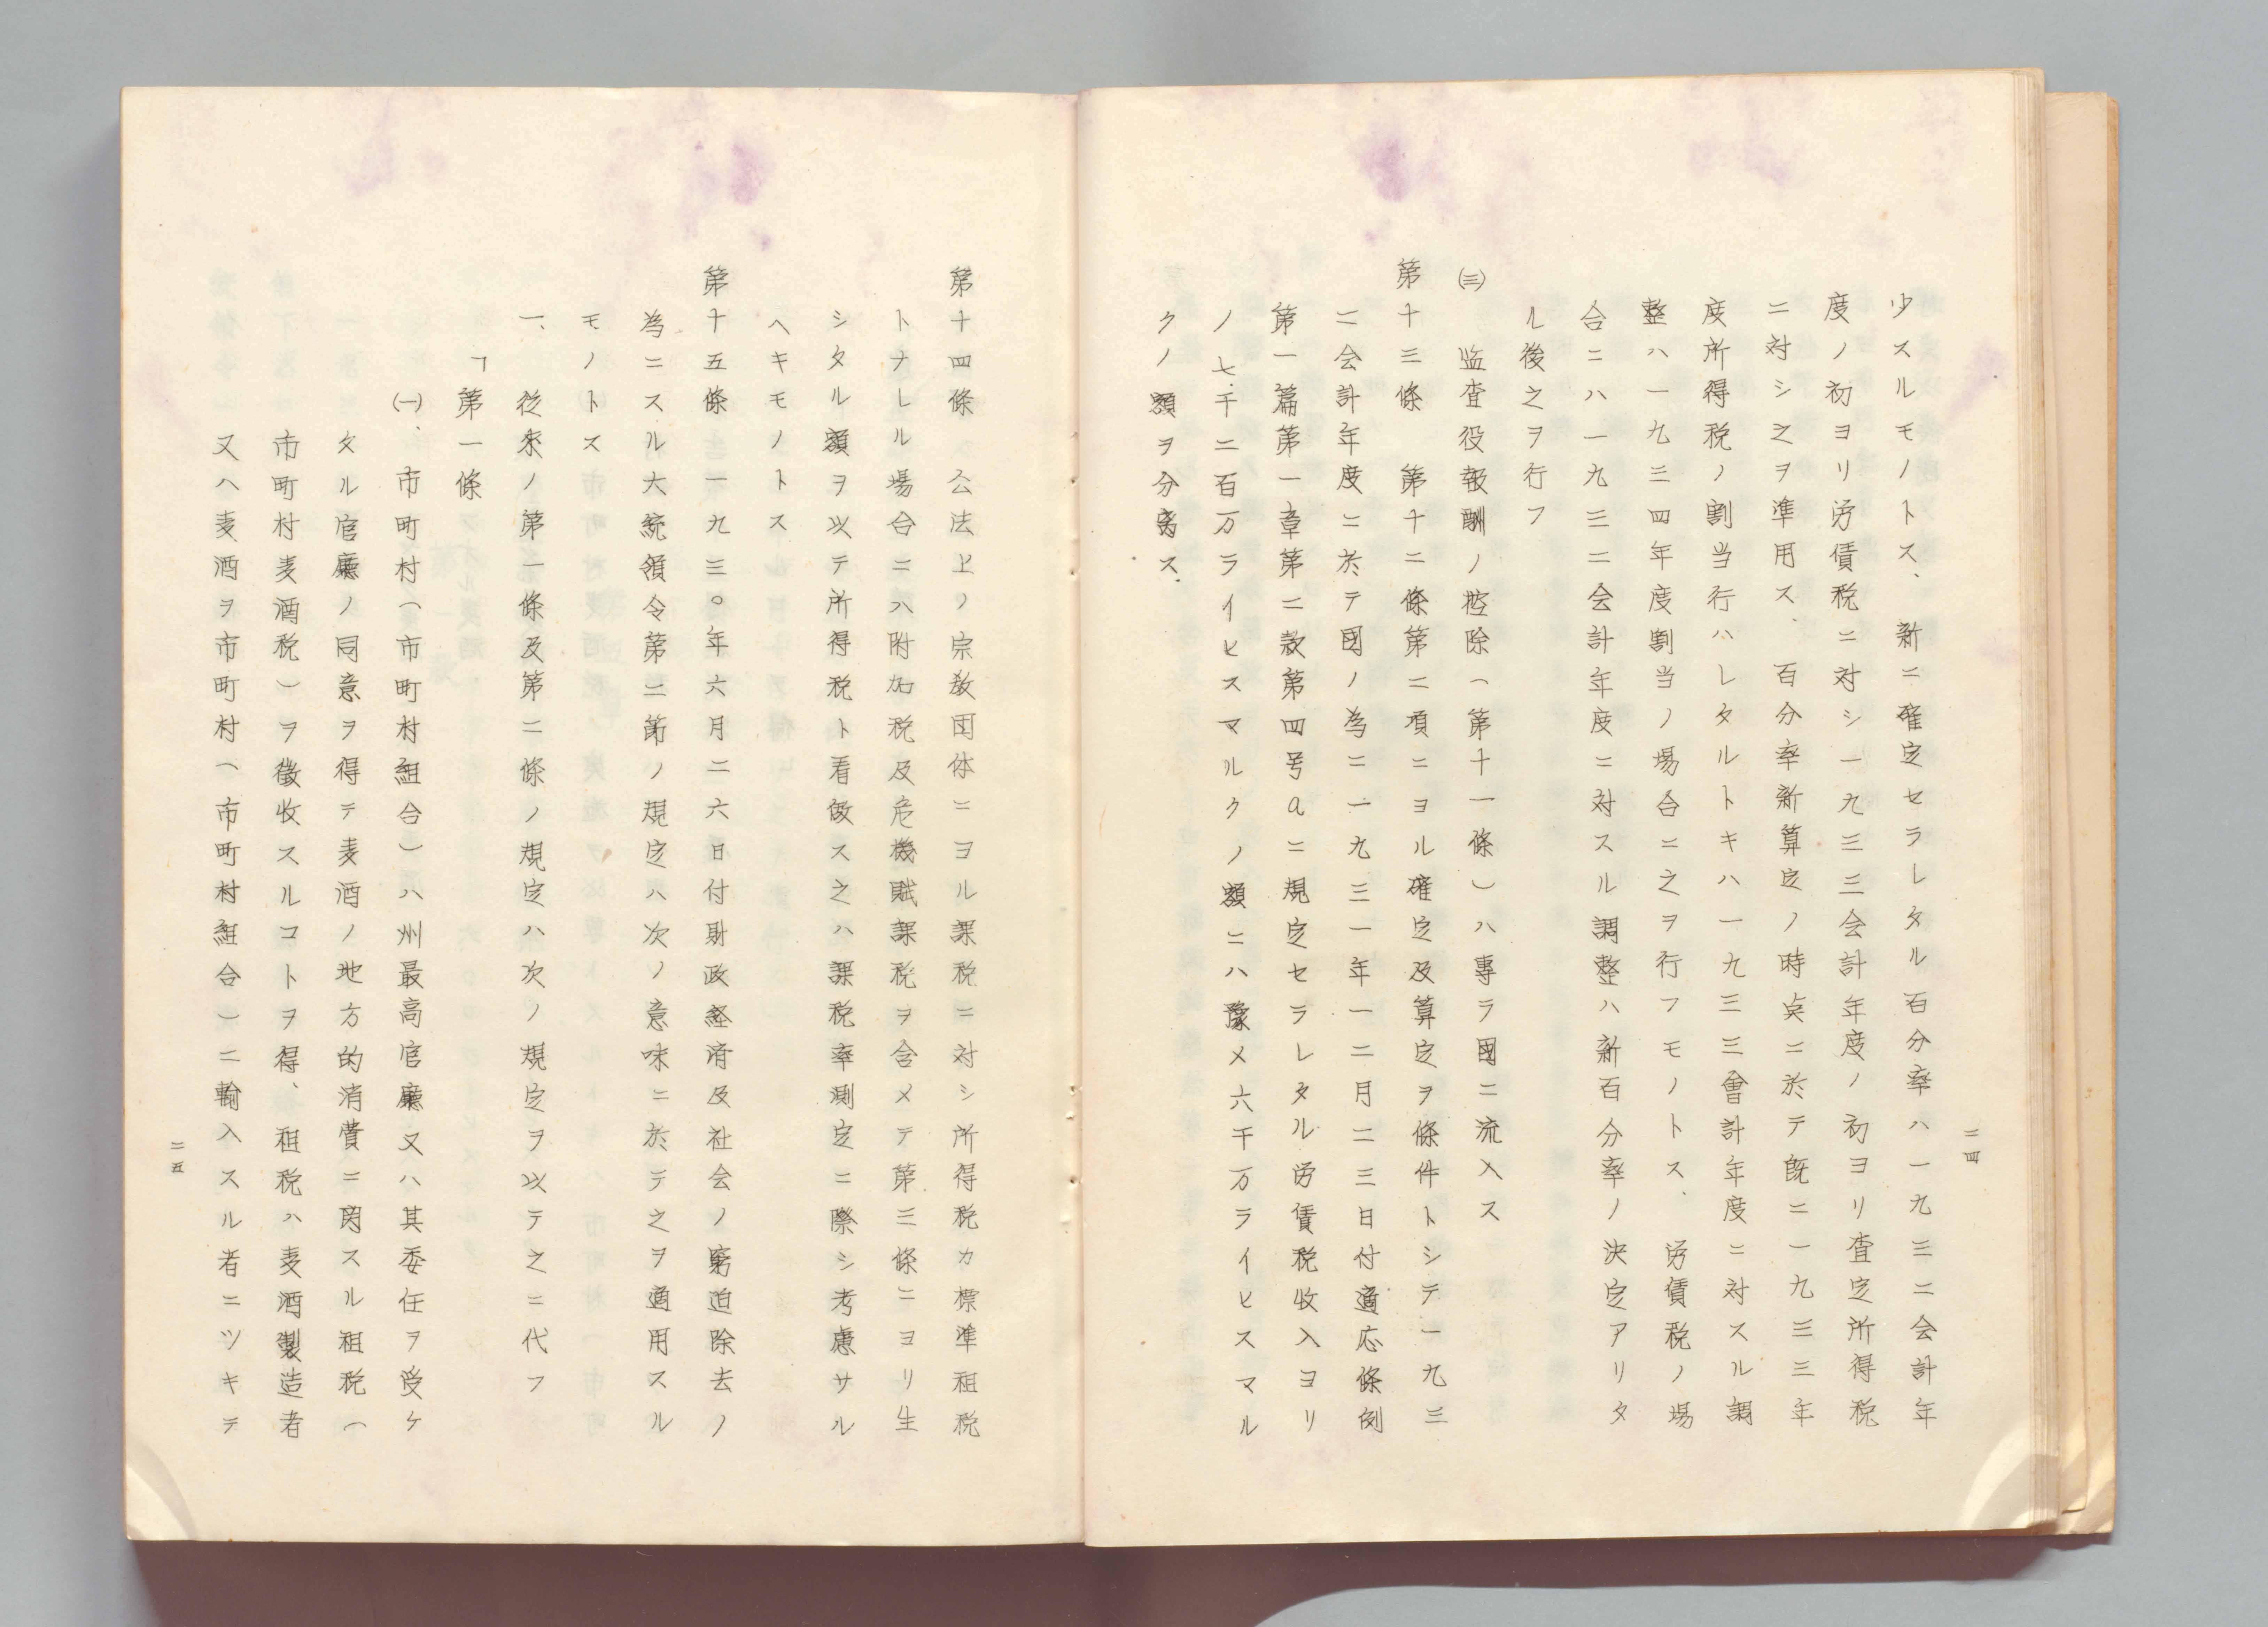 二四
少スルモノトス、新ニ確定セラレタル百分率ハ一九三二会計年
度ノ初ヨリ労債税ニ対シ一九三三会計年度ノ初ヨリ査定所得税
ニ対シ之ヲ準用ス、百分率新算定ノ時点ニ於テ既ニ一九三三年
度所得税ノ割当行ハレタルトキハ一九三三會計年度ニ対スル調
整ハ一九三四年度割当ノ場合ニ之ヲ行フモノトス、労賃税ノ場
合ニハ一九三二会計年度ニ対スル調整ハ新百分率ノ決定アリタ
ル後之ヲ行フ
㈢ 監査役報酬ノ控除(第十一條)ハ専ラ國ニ流入ス
第十三條 第十二條第二項ニヨル確定及算定ヲ條件トシテ一九三
二会計年度ニ於テ國ノ為ニ一九三一年一二月二三日付適応條例
第一篇第一章第二款第四号aニ規定セラレタル労賃税收入ヨリ
ノ七千二百万ライヒスマルクノ額ニハ豫メ六千万ライヒスマル
クノ額ヲ分与ス、
第十四條 公法上ノ宗教団体ニヨル課税ニ対シ所得税カ標準租税
トナレル場合ニハ附加税及危機賦課税ヲ含メテ第三條ニヨリ生
シタル額ヲ以テ所得税ト看做ス之ハ課税率測定ニ際シ考慮サル
ヘキモノトス
第十五條 一九三〇年六月二六日付財政経済及社会ノ窮迫除去ノ
為ニスル大統領令第二節ノ規定ハ次ノ意味ニ於テ之ヲ適用スル
モノトス
一、従来ノ第一條及第二條ノ規定ハ次ノ規定ヲ以テ之ニ代フ
「第一條
㈠、市町村(市町村組合)ハ州最高官廳又ハ其委任ヲ受ケ
タル官廳ノ同意ヲ得テ麦酒ノ地方的消費ニ関スル租税(
市町村麦酒税)ヲ徴收スルコトヲ得、租税ハ麦酒製造者
又ハ麦酒ヲ市町村(市町村組合)ニ輸入スル者ニツキテ
二五